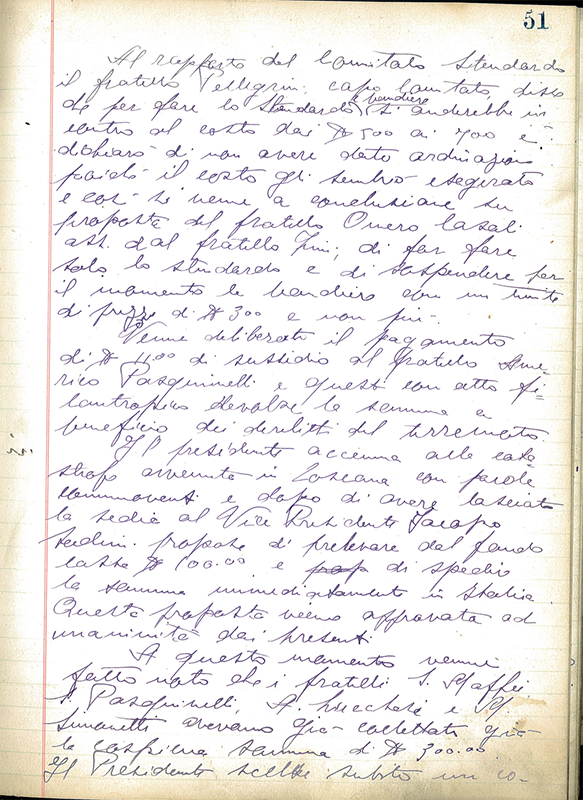 51
Al rapporto del Comitato Stendardo
il fratello Pellegrini, capo Comitato, disse
che per fare lo Stendardo e bandiere si anderebbe in
contro al costo dai $ 500 ai 700 e
dichiarò di non avere dato ordinazioni
poichè il costo gli sembrò esegirato
e così si venne a conclusione su
proposta del fratello Onero Casali
ass. dal fratello Tini, di far fare
solo lo stendardo e di sospendere per
il momento le bandiere con un limite
di prezzo di $ 300 e non più.
Venne deliberato il pagamento
di $ 11.00 di sussidio al fratello Ame-
rico Pasquinelli e questi con atto fi-
lantropico devolse la somma a
beneficio dei derelitti del terremoto.
Il presidente accenna alla cata
strofa avvenuta in Toscana con parole
commoventi e dopo di avere lasciato
la sedia al Vice Presidente Jacopo
propose di prelevare dal fondo
cassa $ 100.00 e di spedire
la somma immediatamente in Italia.
Questa proposta viene approvata ad
unanimità dai presenti.
A questo momento venne
fatto noto che i fratelli S. Maffei
A. Pasquinelli, A. Lucchesi e
Simonetti avevano già collettato già
la cospicua somma di $ 300.00.
Il Presidente scelse subito un co-